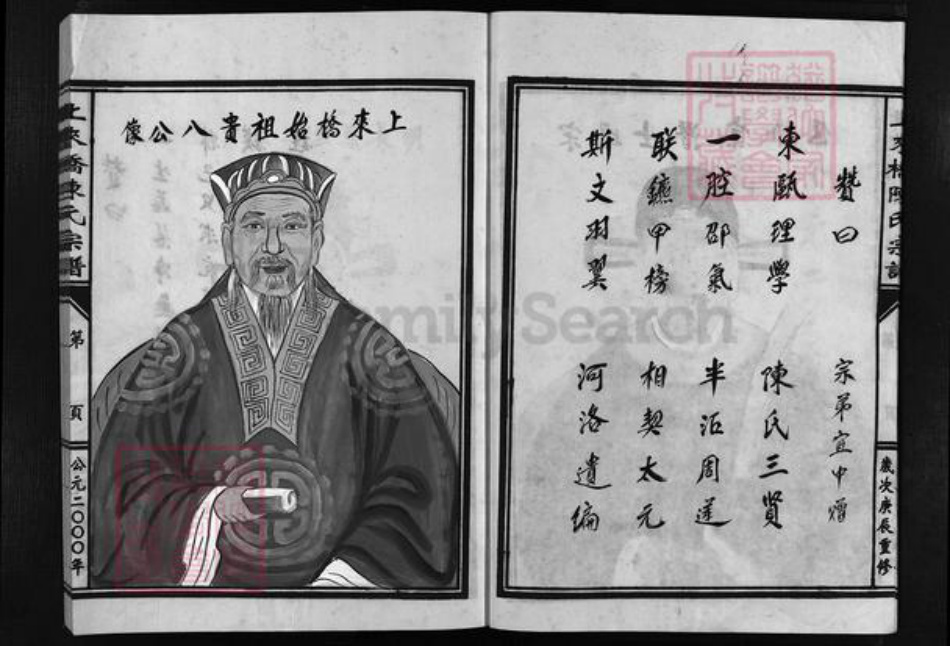 上來橋陳氏宗譜
贊曰
宗弟宜中
東甌理學
陳氏三賢
一腔邵氣
半沍周蓮
联鑣甲榜
相契太元
斯文羽翼
河洛遺编
歲次庚辰重修
上來橋始祖貴八公像
上來橋陳氏宗譜
第
頁
公元二〇〇〇年
FamilySearch